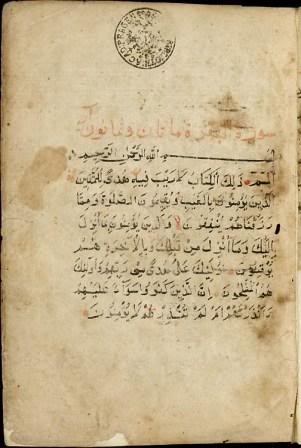 سورة البقرة ماتان وثمانون
بسم الله الرحمن الرحيم
الم ذلك الكتاب لا ريب فيه هدى للمتقين
الذين يؤمنون بالغيب ويقيمون الصلوة ومما
رزقناهم ينفقون والذين يؤمنون بما أنزل
إليك وما أنزل من قبلك وبالآخرة هم
يوقنون أولئك على هدى من ربهم وأولئك
هم المفلحون إن الذين كفروا سواء عليهم
ءأنذرتهم أم لم تنذرهم لا يؤمنون